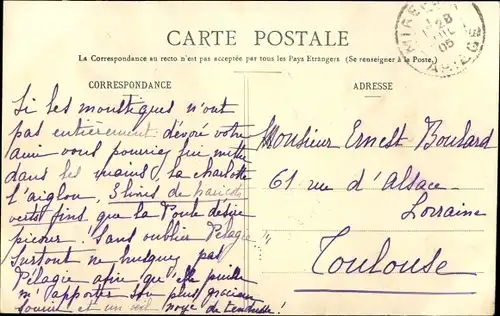 CARTE POSTALE
La Correspondance au recto n'est pas acceptée par tous les Pays Etrangers (Se renseigner à la Poste.)
CORRESPONDANCE
ADRESSE
Si les moustiques n'ont
pas entièrement dévoré votre
amie vous pourriez lui mettre
dans les mains la charlotte
l'aiglon, 3 livres de haricots
verts fins que la Poule désire
picorer! Sans oublier Pélagie
Surtout ne pas
Pélagie afin qu'elle puisse
m'apporter son plus gracieux
sourire et un œil noyé de tendresse!
Monsieur Ernest Boulard
61 rue d'Alsace-
Lorraine
Toulouse
28
05
ARIEGE